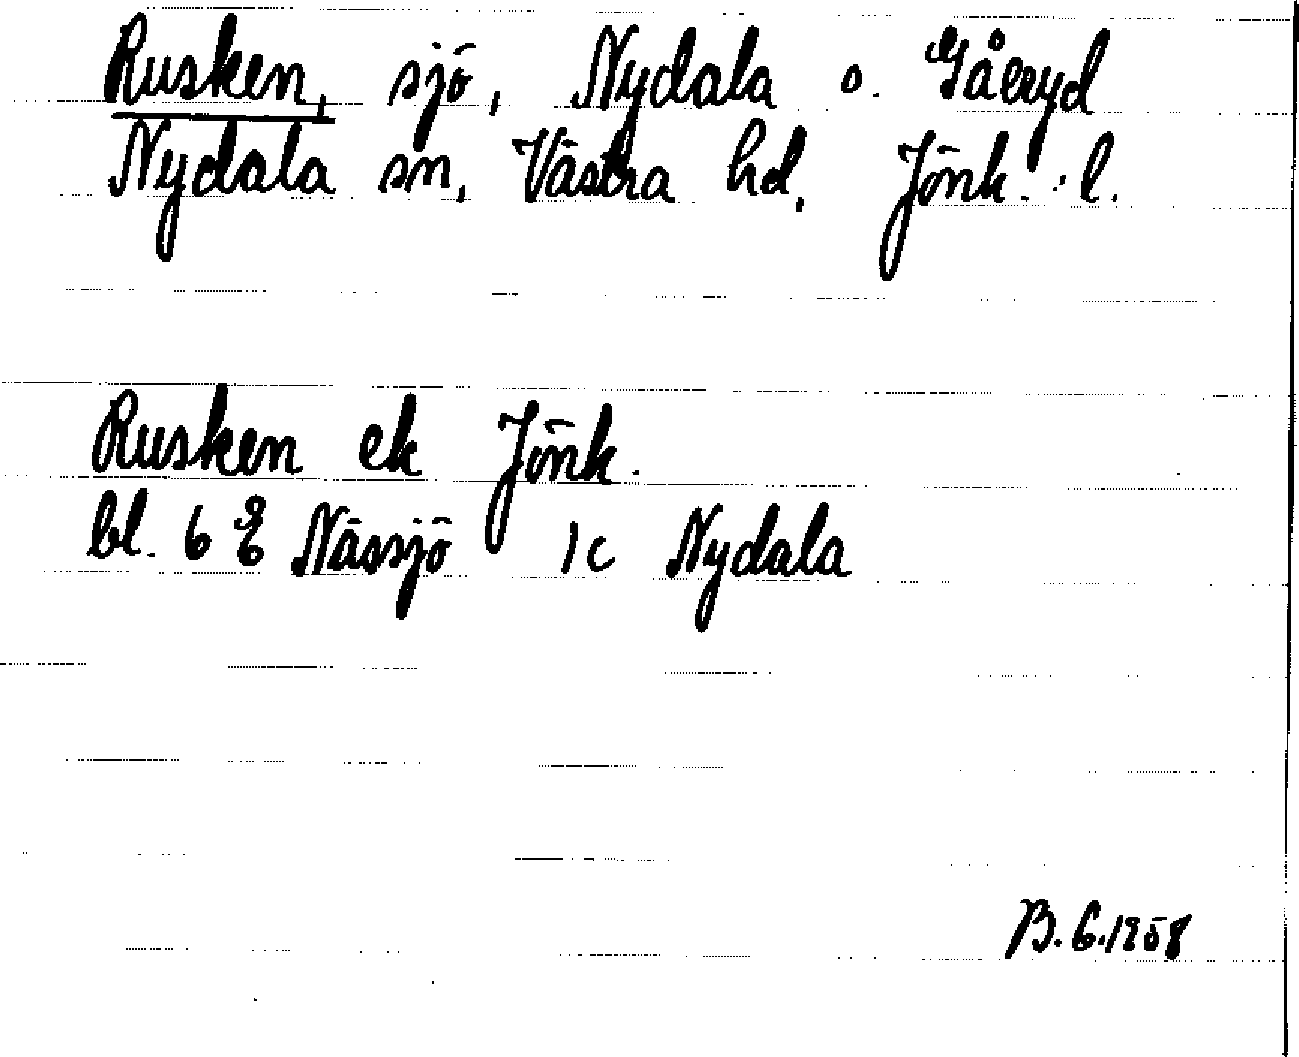 Rusken, sjö, Nydala o. Gåeryd
Nydala sn, Västra hd, Jönk. l.
Rusken ek Jönk.
bl. 6 E Nässjö 1c Nydala
B.G.1958